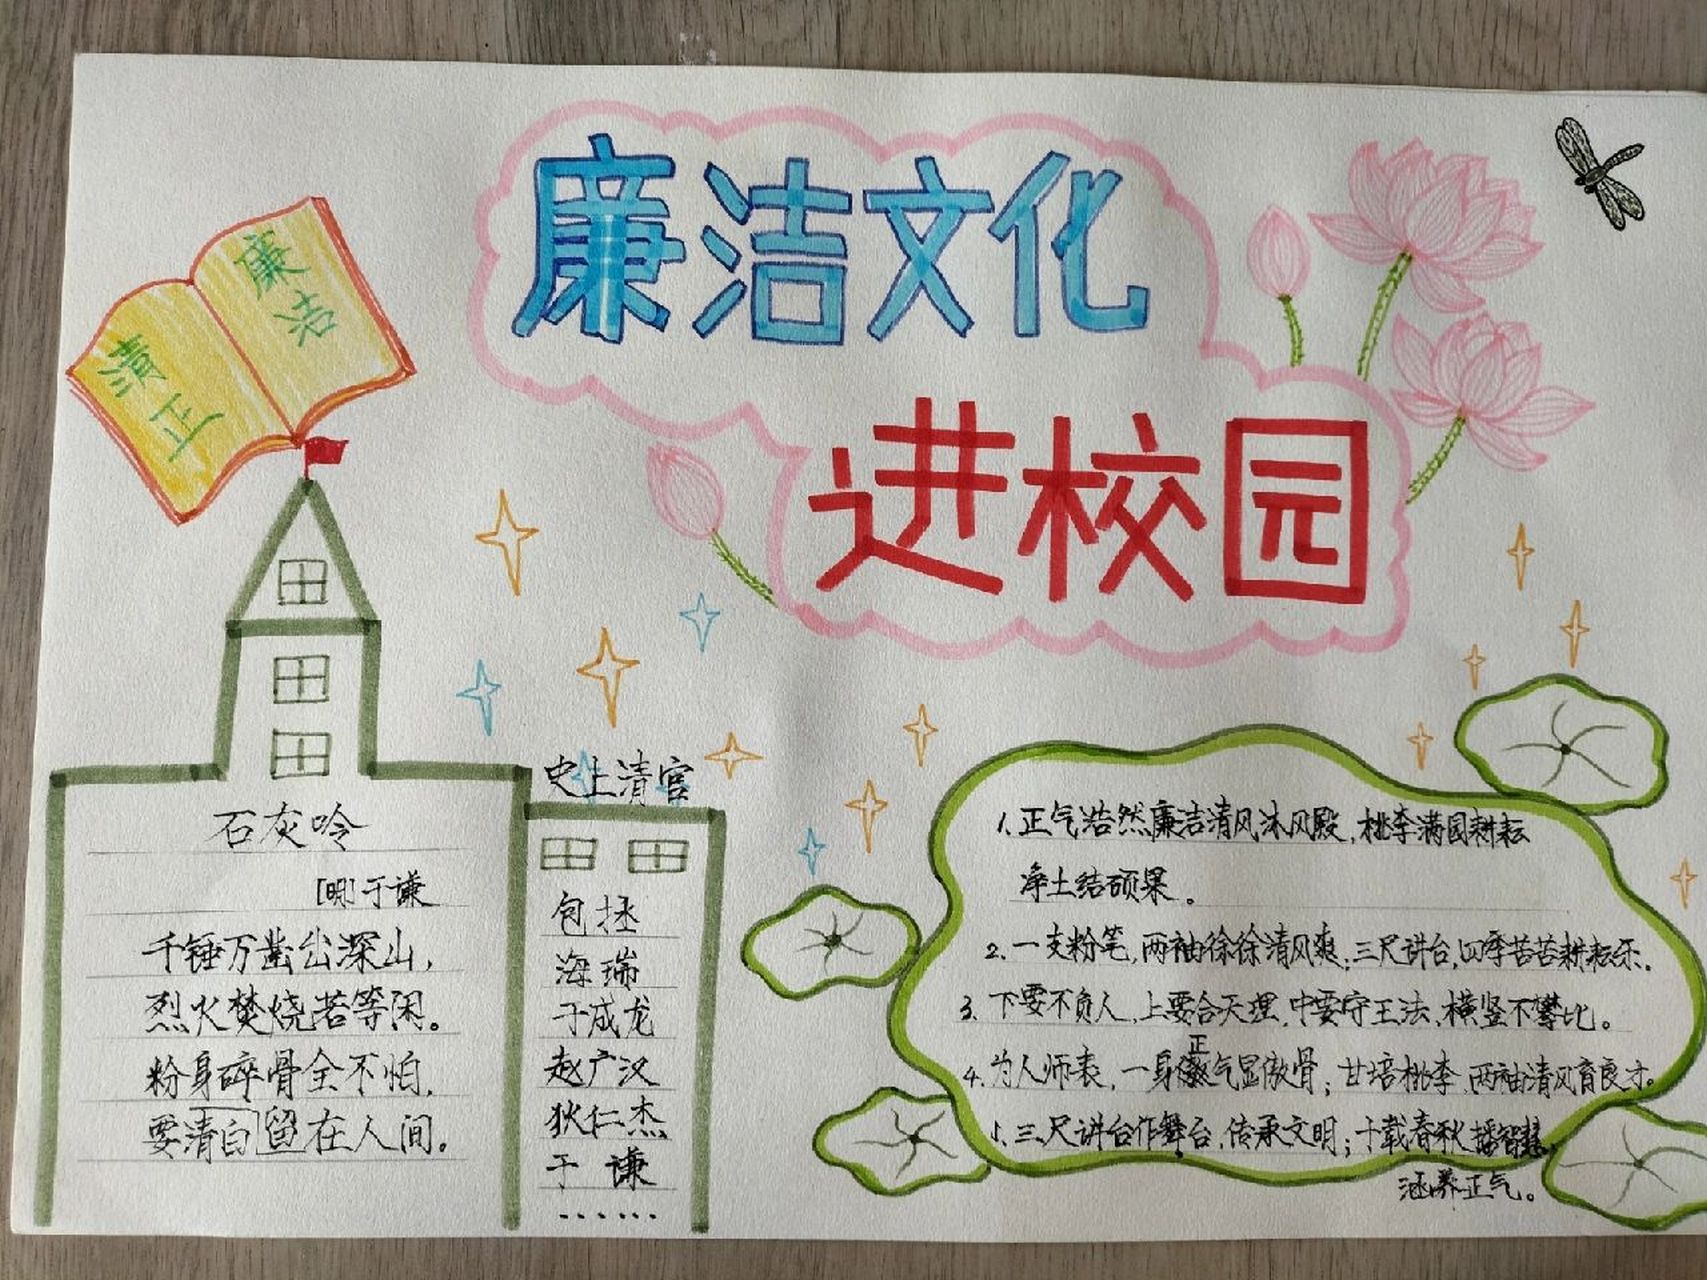 廉洁文化
进校园
廉洁
清正
石灰吟
[明]于谦
千锤万凿出深山，
烈火焚烧若等闲。
粉身碎骨全不怕，
要清白留在人间。
史上清官
包拯
海瑞
于成龙
赵广汉
狄仁杰
于 谦
……
1.正气浩然廉洁清风沐风殿，桃李满园耕耘
净土结硕果。
2.一支粉笔，两袖徐徐清风爽；三尺讲台，四季苦苦耕耘乐。
3.下要不负人，上要合天理，中要守王法，横竖不攀比。
4.为人师表，一身正气显傲骨；甘培桃李，两袖清风育良才。
5.三尺讲台作舞台，传承文明；十载春秋播智慧，
涵养正气。